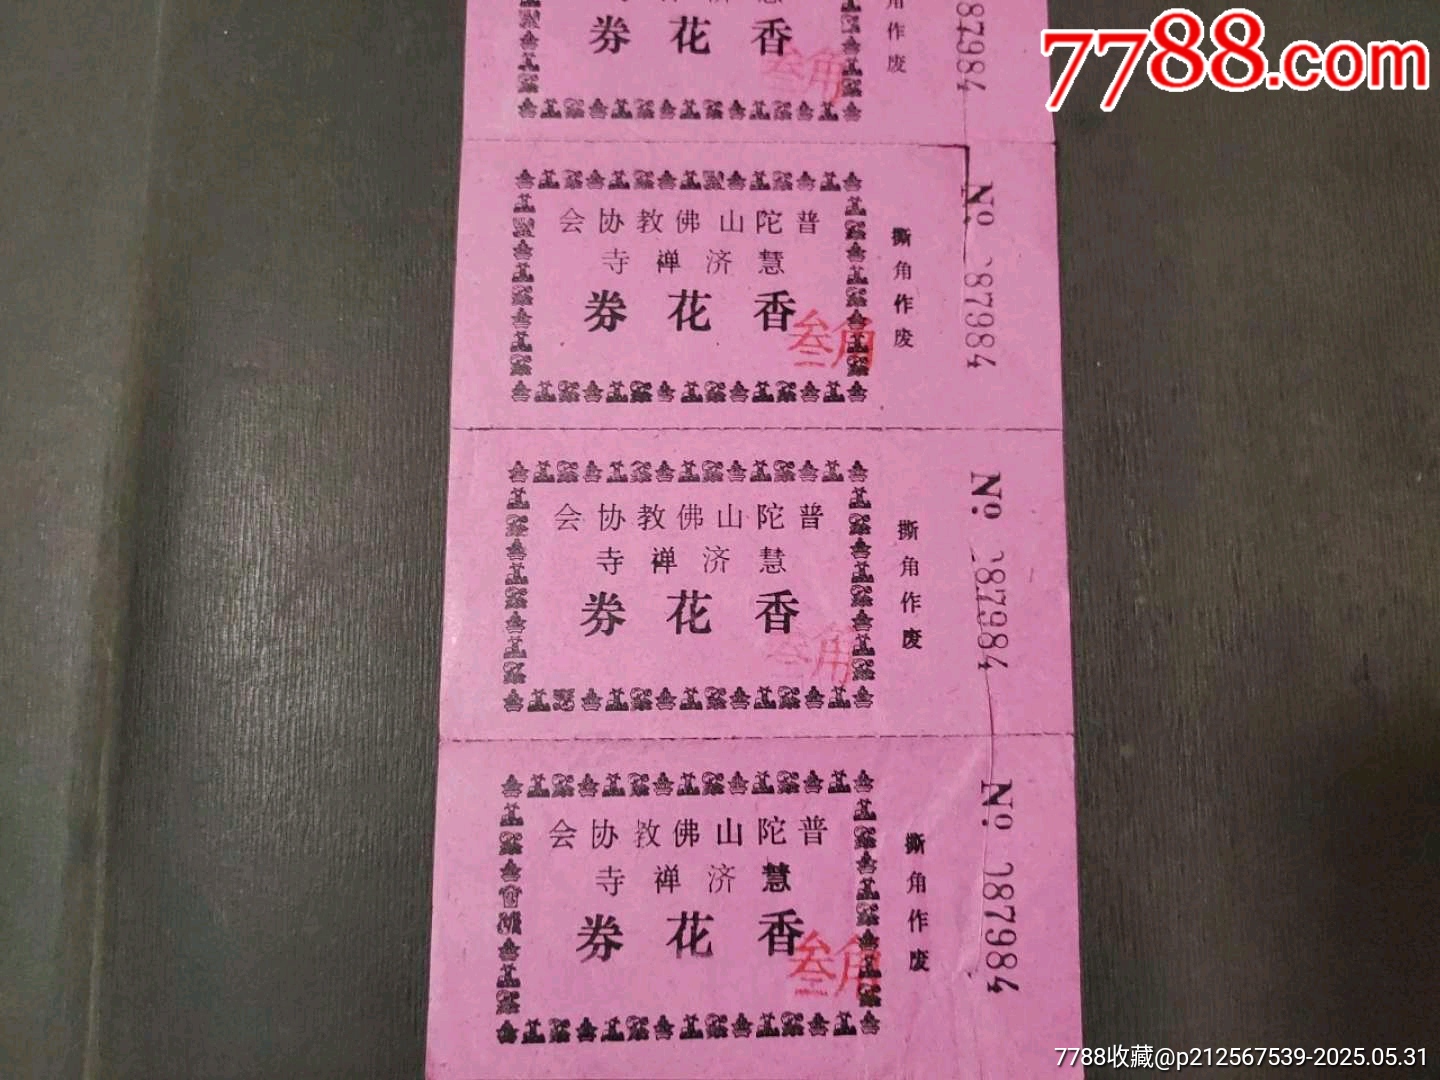 7788.com
香花券
叁角
角作废
87984
普陀山佛教协会
慧济禅寺
香花券
叁角
撕角作废
No
87984
普陀山佛教协会
慧济禅寺
香花券
叁角
撕角作废
No
87984
普陀山佛教协会
慧济禅寺
香花券
叁角
撕角作废
No
087984
7788收藏@p212567539-2025.05.31